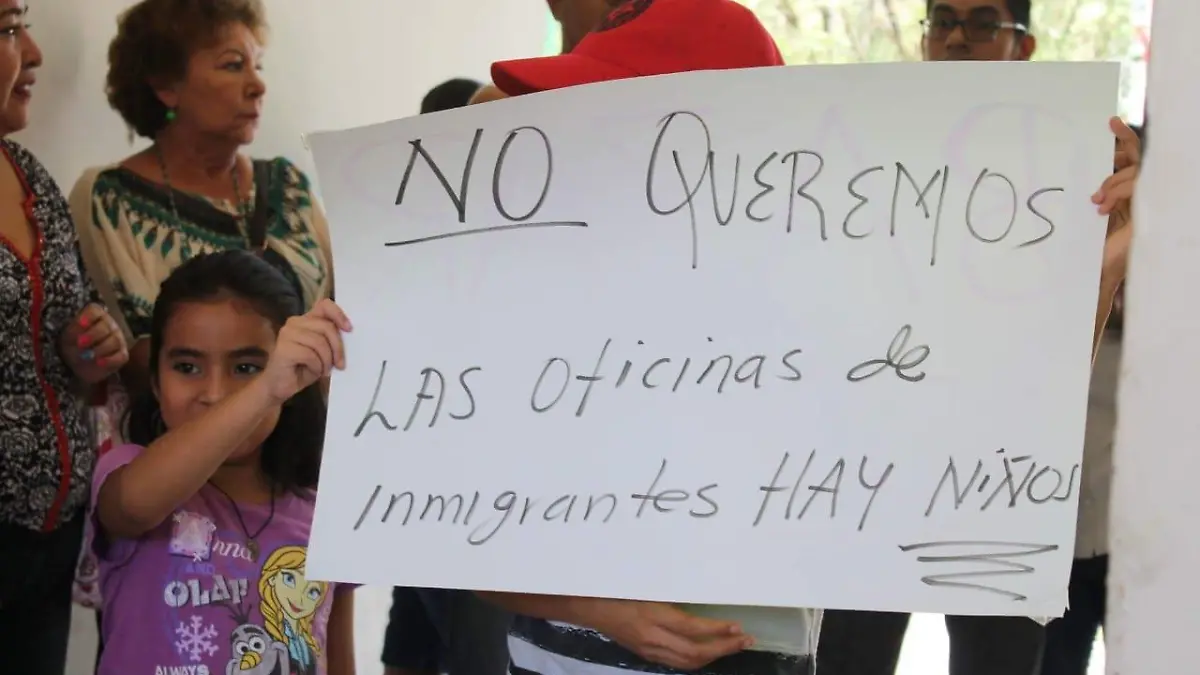 NO QUEREMOS
LAS oficinas de
inmigrantes HAY NIÑOS
nna
AND
OLAF
ALWAYS